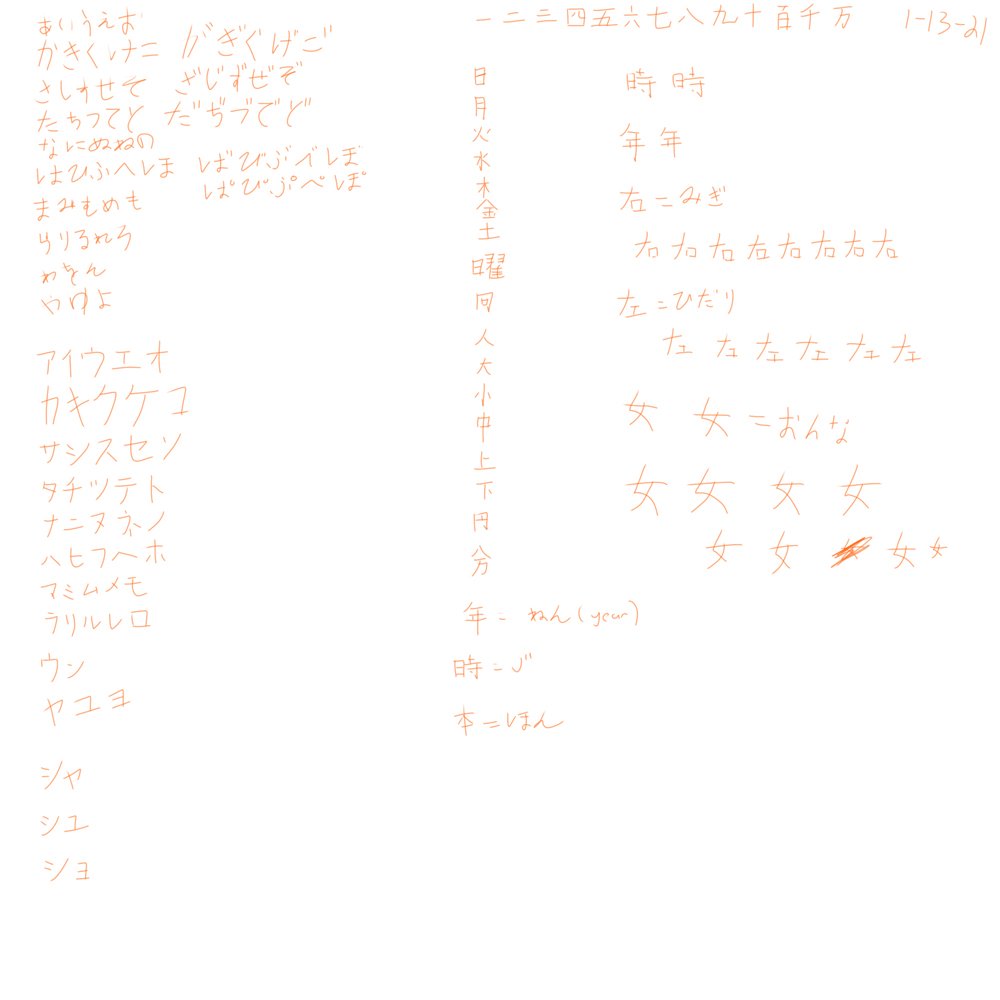 あいうえお
かきくけこ がぎぐげご
さしすせそ ざじずぜぞ
たちつてと だぢづでど
なにぬねの
はひふへほ ばびぶべぼ
ぱぴぷぺぽ
まみむめも
らりるれろ
わをん
やゆよ
アイウエオ
カキクケコ
サシスセソ
タチツテト
ナニヌネノ
ハヒフヘホ
マミムメモ
ラリルレロ
ウン
ヤユヨ
シャ
シュ
ショ
一二三四五六七八九十百千万 1-13-21
日
月
火
水
木
金
土
曜
何
人
大
小
中
上
下
円
分
年=ねん(year)
時=じ
本=ほん
時時
年年
右=みぎ
右右右右右右右
左=ひだり
左左左左左左
女 女=おんな
女女女女
女女 女女